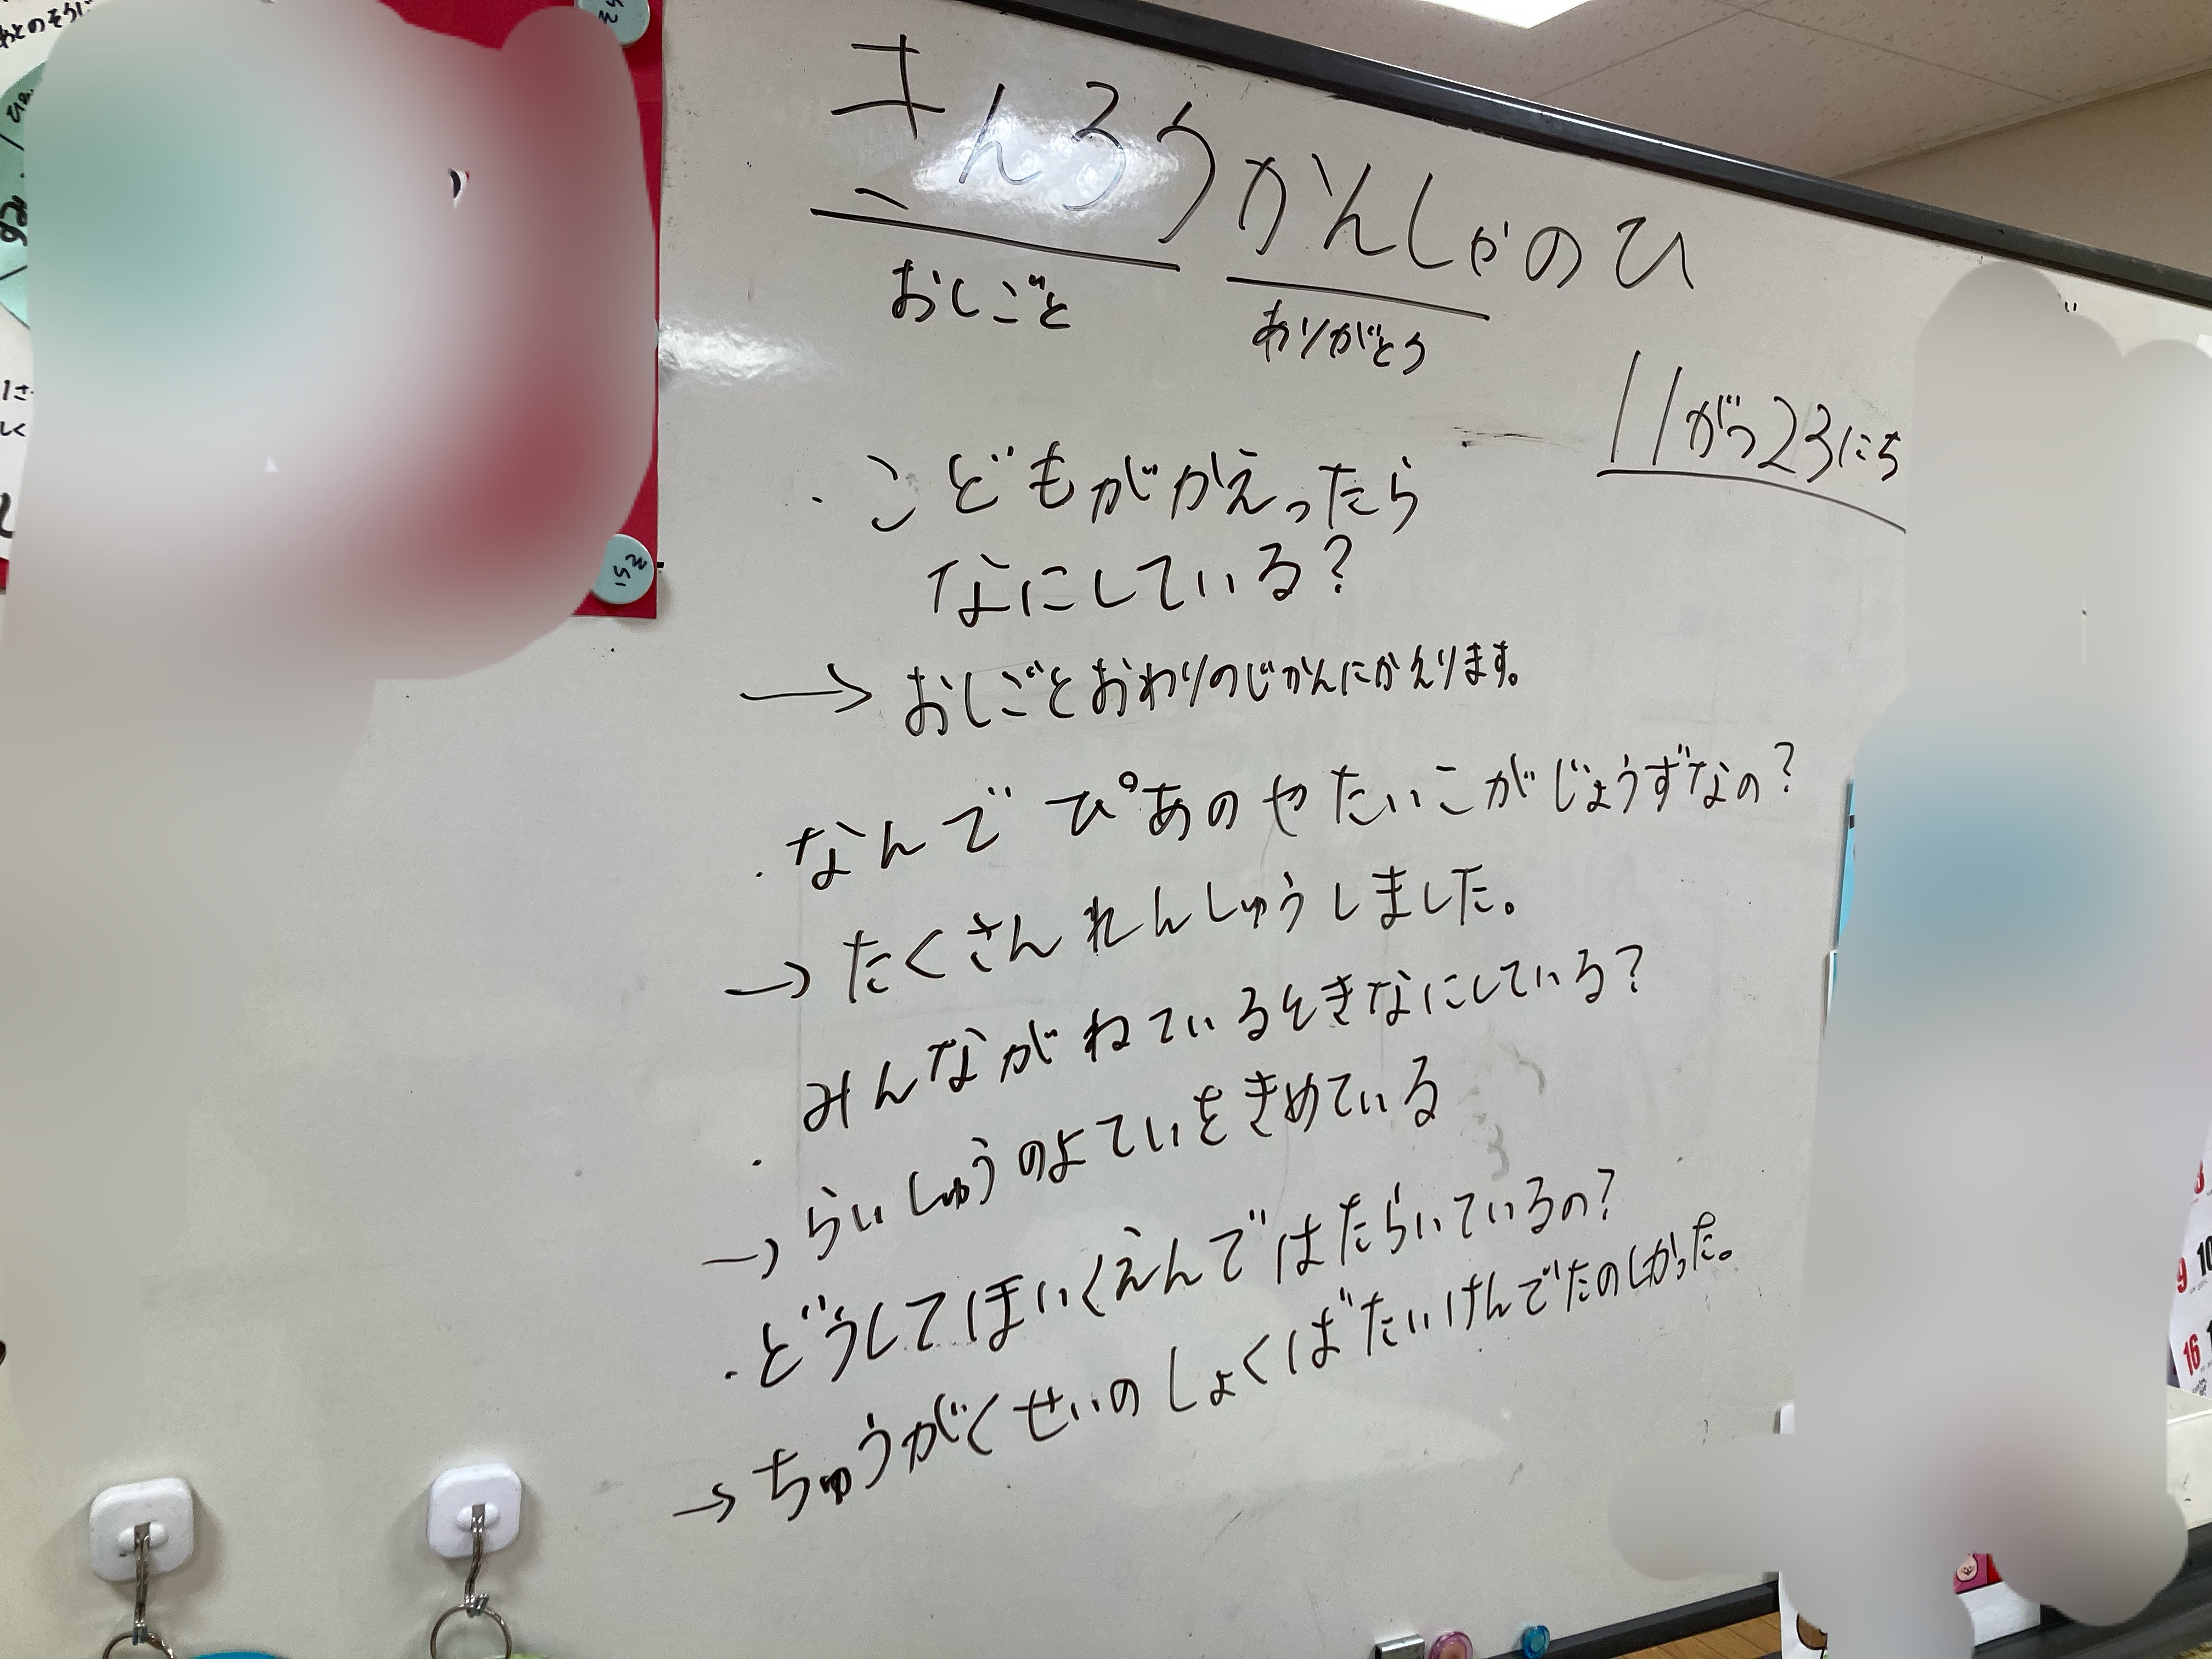 きんろうかんしゃのひ
おしごと ありがとう
11がつ23にち
・こどもがかえったら
なにしている?
→おしごとおわりのじかんにかえります。
・なんでぴあのやたいこがじょうずなの?
→たくさんれんしゅうしました。
・みんながねているときなにしている?
→らいしゅうのよていをきめている
・どうしてほいくえんではたらいているの?
→ちゅうがくせいのしょくばたいけんでたのしかった。
16